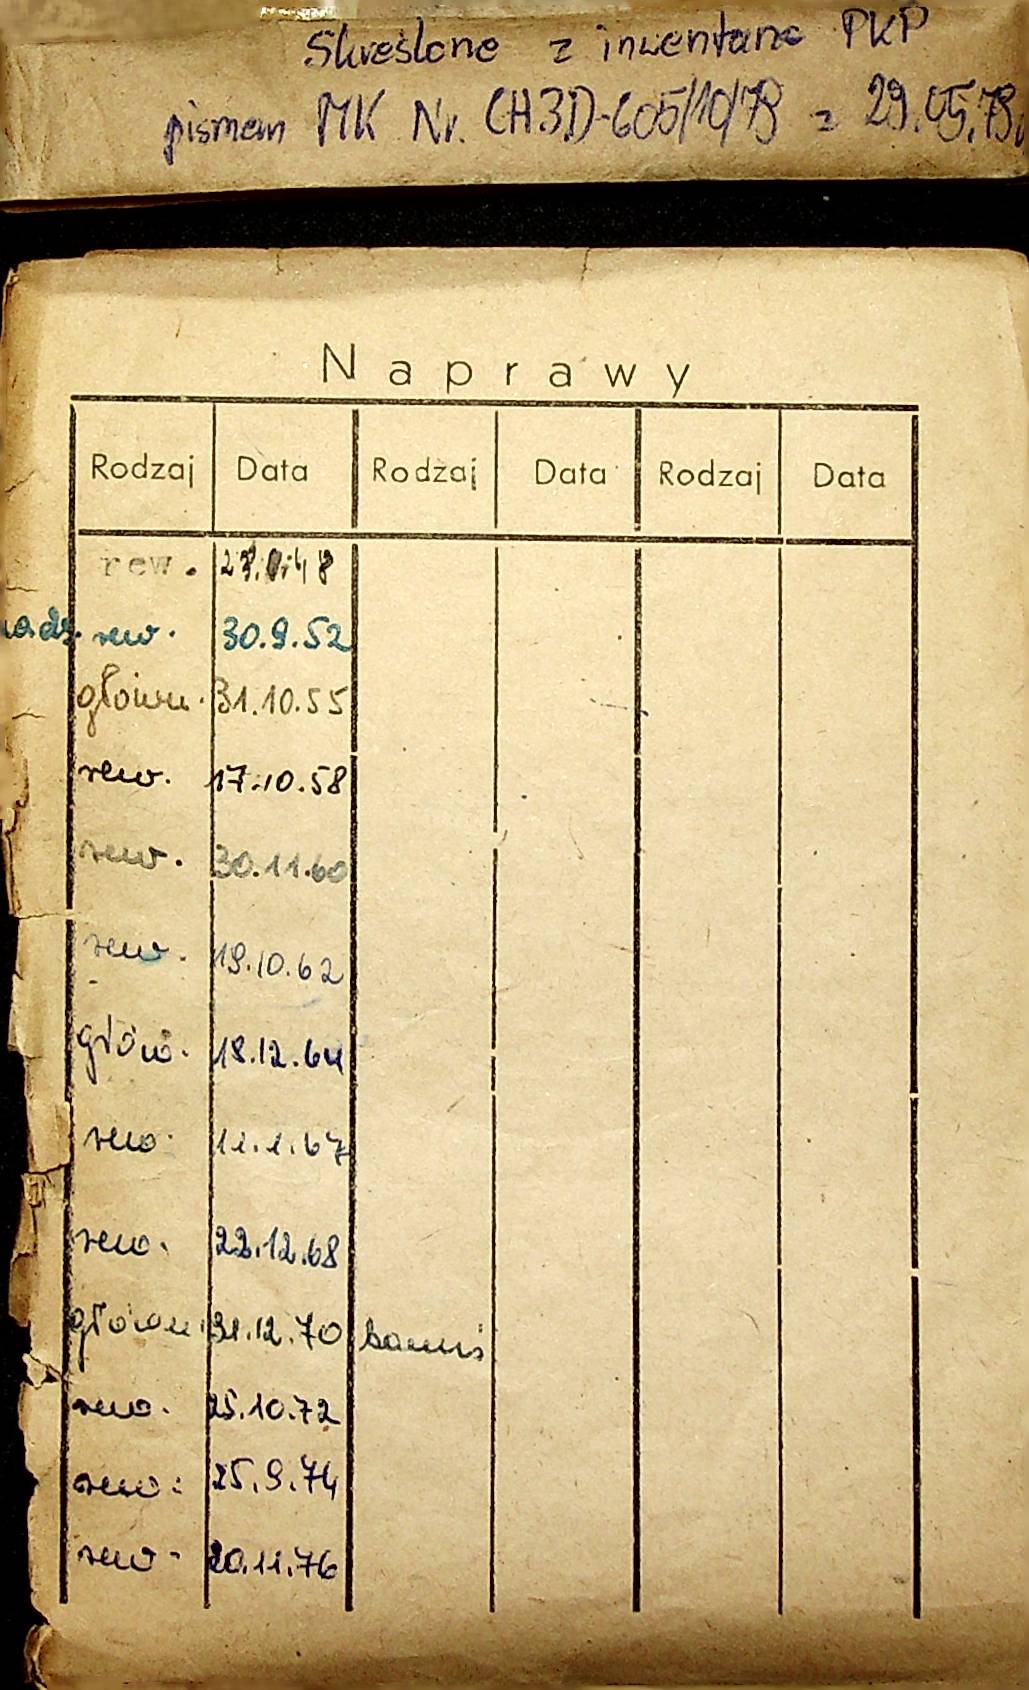 Skreślone z inwentarza PKP
pismem MK Nr. CH3D-605/10/79 z 29.05.79
Naprawy
Rodzaj Data Rodzaj Data Rodzaj Data
rew.
rew. 30.9.52
główn. 31.10.55
rew. 17.10.58
rew. 30.11.60
rew. 19.10.62
głów. 18.12.64
rew. 11.1.67
rew. 22.12.68
główn. 31.12.70
rew. 25.10.72
rew. 25.9.74
rew. 20.11.76